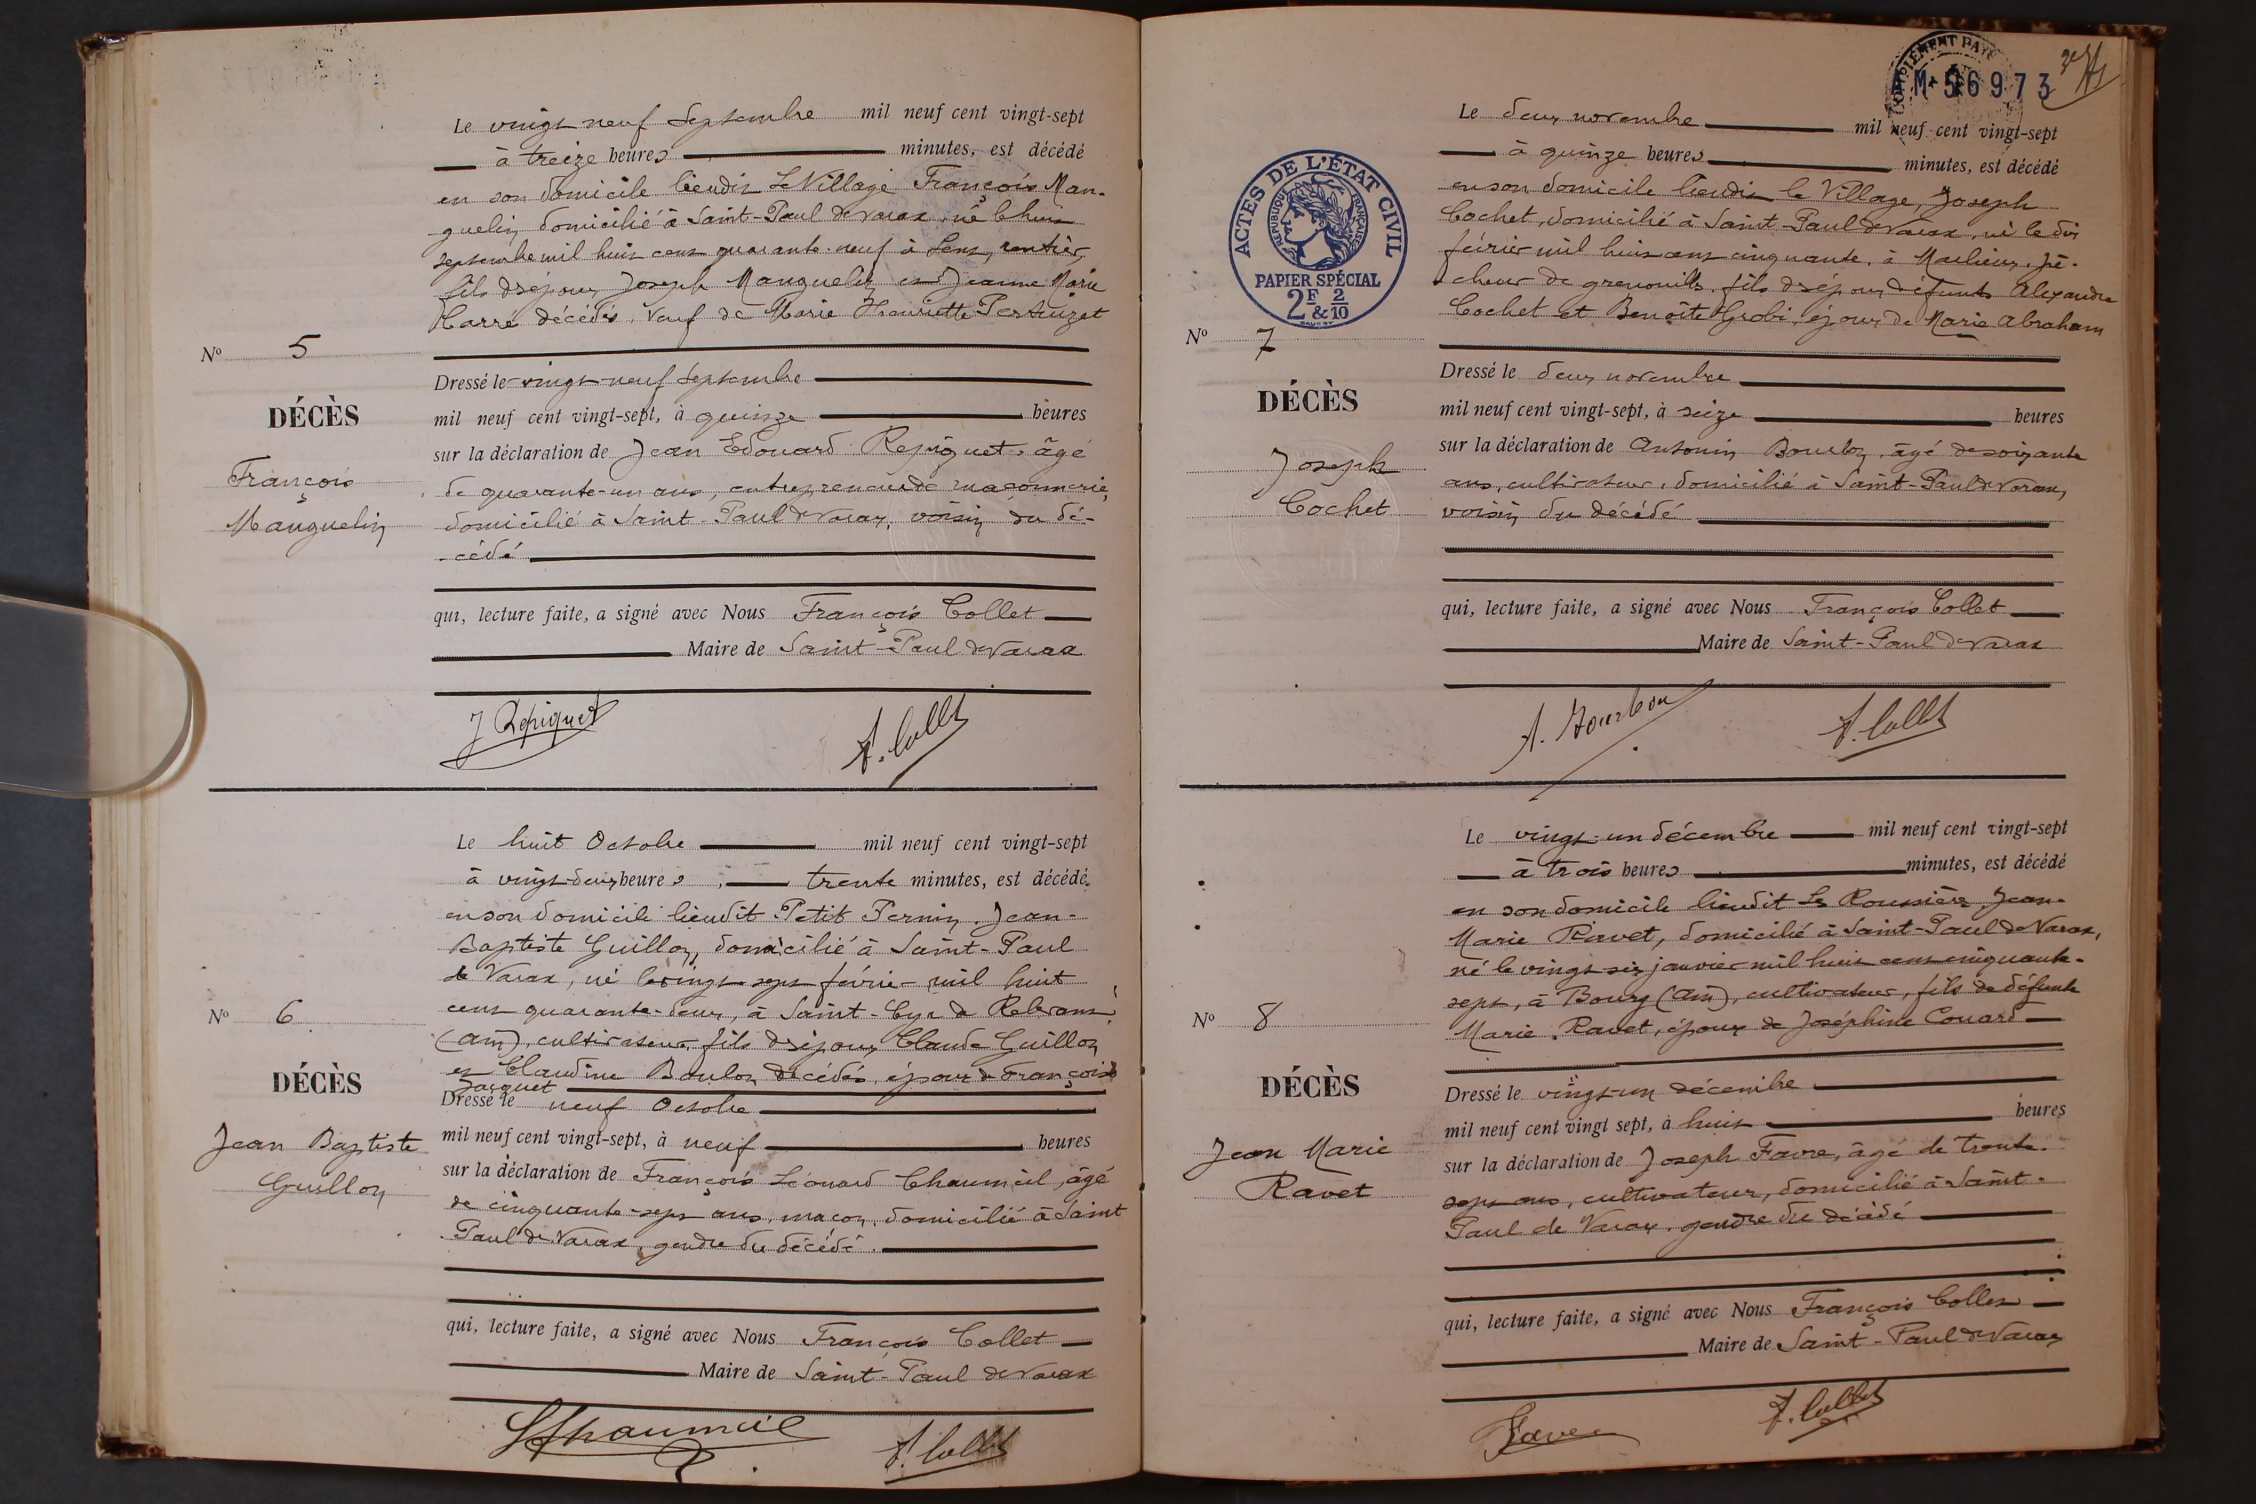 Le vingt neuf Septembre mil neuf cent vingt-sept
à treize heures minutes, est décédé
en son domicile lieudit Le Village François Man-
guelin, domicilié à Saint-Paul de Varax, né le huit
septembre mil huit cent quarante-neuf à Lent, rentier,
fils d'époux Joseph Manguelin et Jeanne Marie
Carré décédés, veuf de Marie Henriette Pertuizet
No 5
DÉCÈS
François
Manguelin
Dressé le vingt-neuf Septembre
mil neuf cent vingt-sept, à quinze heures
sur la déclaration de Jean Edouard Repiquet, âgé
de quarante-un ans, entrepreneur de maçonnerie,
domicilié à Saint-Paul de Varax, voisin du dé-
-cédé
qui, lecture faite, a signé avec Nous François Collet
Maire de Saint-Paul de Varax
J Repiquet
F. Collet
Le huit Octobre mil neuf cent vingt-sept
à vingt-deux heures trente minutes, est décédé
en son domicile lieudit Petit Pernin, Jean-
Baptiste Guillon, domicilié à Saint-Paul
de Varax, né le vingt sept février mil huit
cent quarante-deux, à Saint-Cyr de Relevant
(Ain), cultivateur, fils d'époux Claude Guillon
et Claudine Boulon décédés, époux de Françoise
Jacquet
No 6
DÉCÈS
Jean Baptiste
Guillon
Dressé le neuf Octobre
mil neuf cent vingt-sept, à neuf heures
sur la déclaration de François Léonard Chaumeil, âgé
de cinquante-sept ans, maçon, domicilié à Saint
Paul de Varax, gendre du décédé.
qui, lecture faite, a signé avec Nous François Collet
Maire de Saint-Paul de Varax
Chaumeil
F. Collet
COMPLÉMENT PAYÉ
AM 56973
ACTES DE L'ÉTAT CIVIL
RÉPUBLIQUE FRANÇAISE
PAPIER SPÉCIAL
2F & 2/10
Le deux novembre mil neuf cent vingt-sept
à quinze heures minutes, est décédé
en son domicile lieudit le Village, Joseph
Cochet, domicilié à Saint-Paul de Varax, né le dix
février mil huit cent cinquante, à Marlieux, pê-
cheur de grenouilles, fils d'époux défunts Alexandre
Cochet et Benoîte Grobi, époux de Marie Abraham
No 7
DÉCÈS
Joseph
Cochet
Dressé le deux novembre
mil neuf cent vingt-sept, à seize heures
sur la déclaration de Antonin Bourbon, âgé de soixante
ans, cultivateur, domicilié à Saint-Paul de Varax,
voisin du décédé
qui, lecture faite, a signé avec Nous François Collet
Maire de Saint-Paul de Varax
A. Bourbon
F. Collet
Le vingt-un décembre mil neuf cent vingt-sept
à trois heures minutes, est décédé
en son domicile lieudit La Roussière, Jean-
Marie Ravet, domicilié à Saint-Paul de Varax,
né le vingt six janvier mil huit cent cinquante-
sept, à Bourg (Ain), cultivateur, fils de défunte
Marie Ravet, époux de Joséphine Couard
No 8
DÉCÈS
Jean Marie
Ravet
Dressé le vingt-un décembre
mil neuf cent vingt sept, à huit heures
sur la déclaration de Joseph Favre, âgé de trente-
sept ans, cultivateur, domicilié à Saint-
Paul de Varax, gendre du décédé
qui, lecture faite, a signé avec Nous François Collet
Maire de Saint-Paul de Varax
Favre
F. Collet